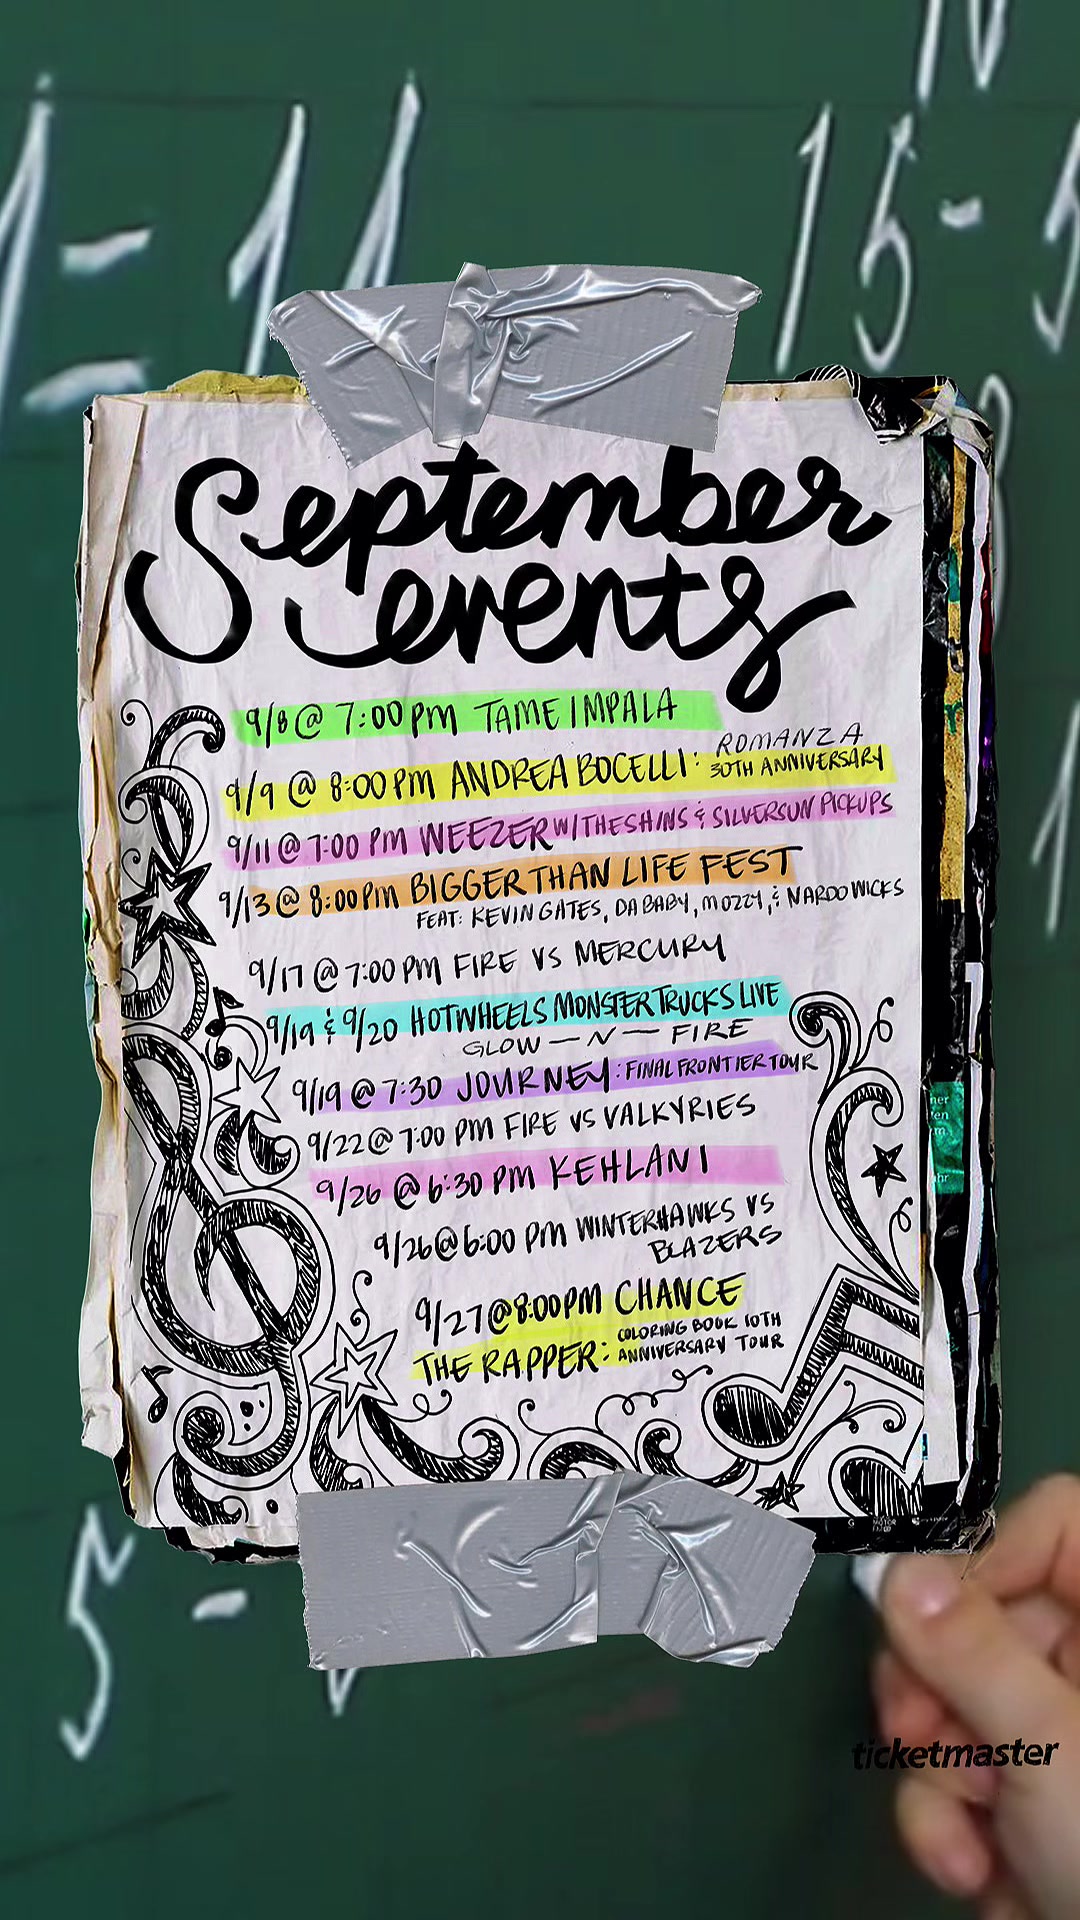 1 - 11
15 - 5
September
events
9/8 @ 7:00 PM TAME IMPALA
9/9 @ 8:00 PM ANDREA BOCELLI: ROMANZA
30TH ANNIVERSARY
9/11 @ 7:00 PM WEEZER W/ THE SHINS & SILVERSUN PICKUPS
9/13 @ 8:00 PM BIGGER THAN LIFE FEST
FEAT: KEVIN GATES, DA BABY, MOZZY, & NARDO WICKS
9/17 @ 7:00 PM FIRE VS MERCURY
9/19 & 9/20 HOTWHEELS MONSTER TRUCKS LIVE
GLOW-N-FIRE
9/19 @ 7:30 JOURNEY: FINAL FRONTIER TOUR
9/22 @ 7:00 PM FIRE VS VALKYRIES
9/26 @ 6:30 PM KEHLANI
9/26 @ 6:00 PM WINTERHAWKS VS
BLAZERS
9/27 @ 8:00 PM CHANCE
THE RAPPER: COLORING BOOK 10TH
ANNIVERSARY TOUR
5 -
ticketmaster